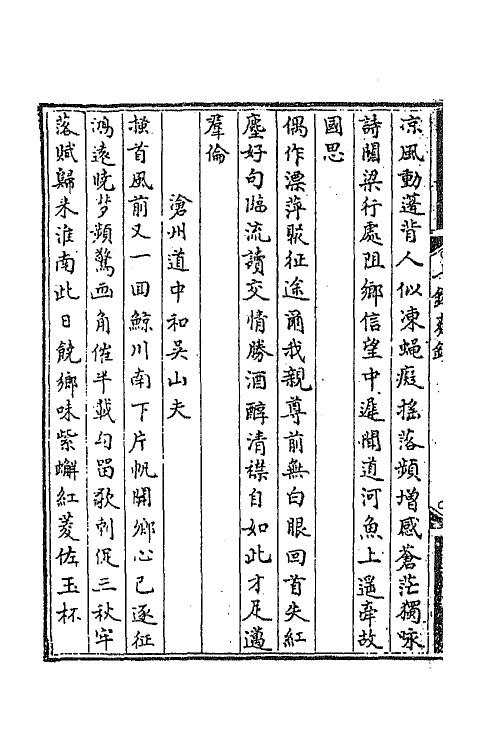 凉風動蓬背人似凍蠅癡搖落頻增感蒼茫獨咏
詩闗梁行處阻鄉信望中遲聞道河魚上遥牽故
國思
偶作漂萍聚征途爾我親尊前無白眼回首失紅
塵好句臨流讀交情勝酒醇清襟自如此才足邁
羣倫
滄州道中和吴山夫
搔首風前又一回鯨川南下片帆開鄉心已逐征
鴻遠曉夢頻驚畫角催半載勾留歌刺促三秋牢
落賦歸来淮南此日饒鄉味紫蠏紅菱佐玉杯